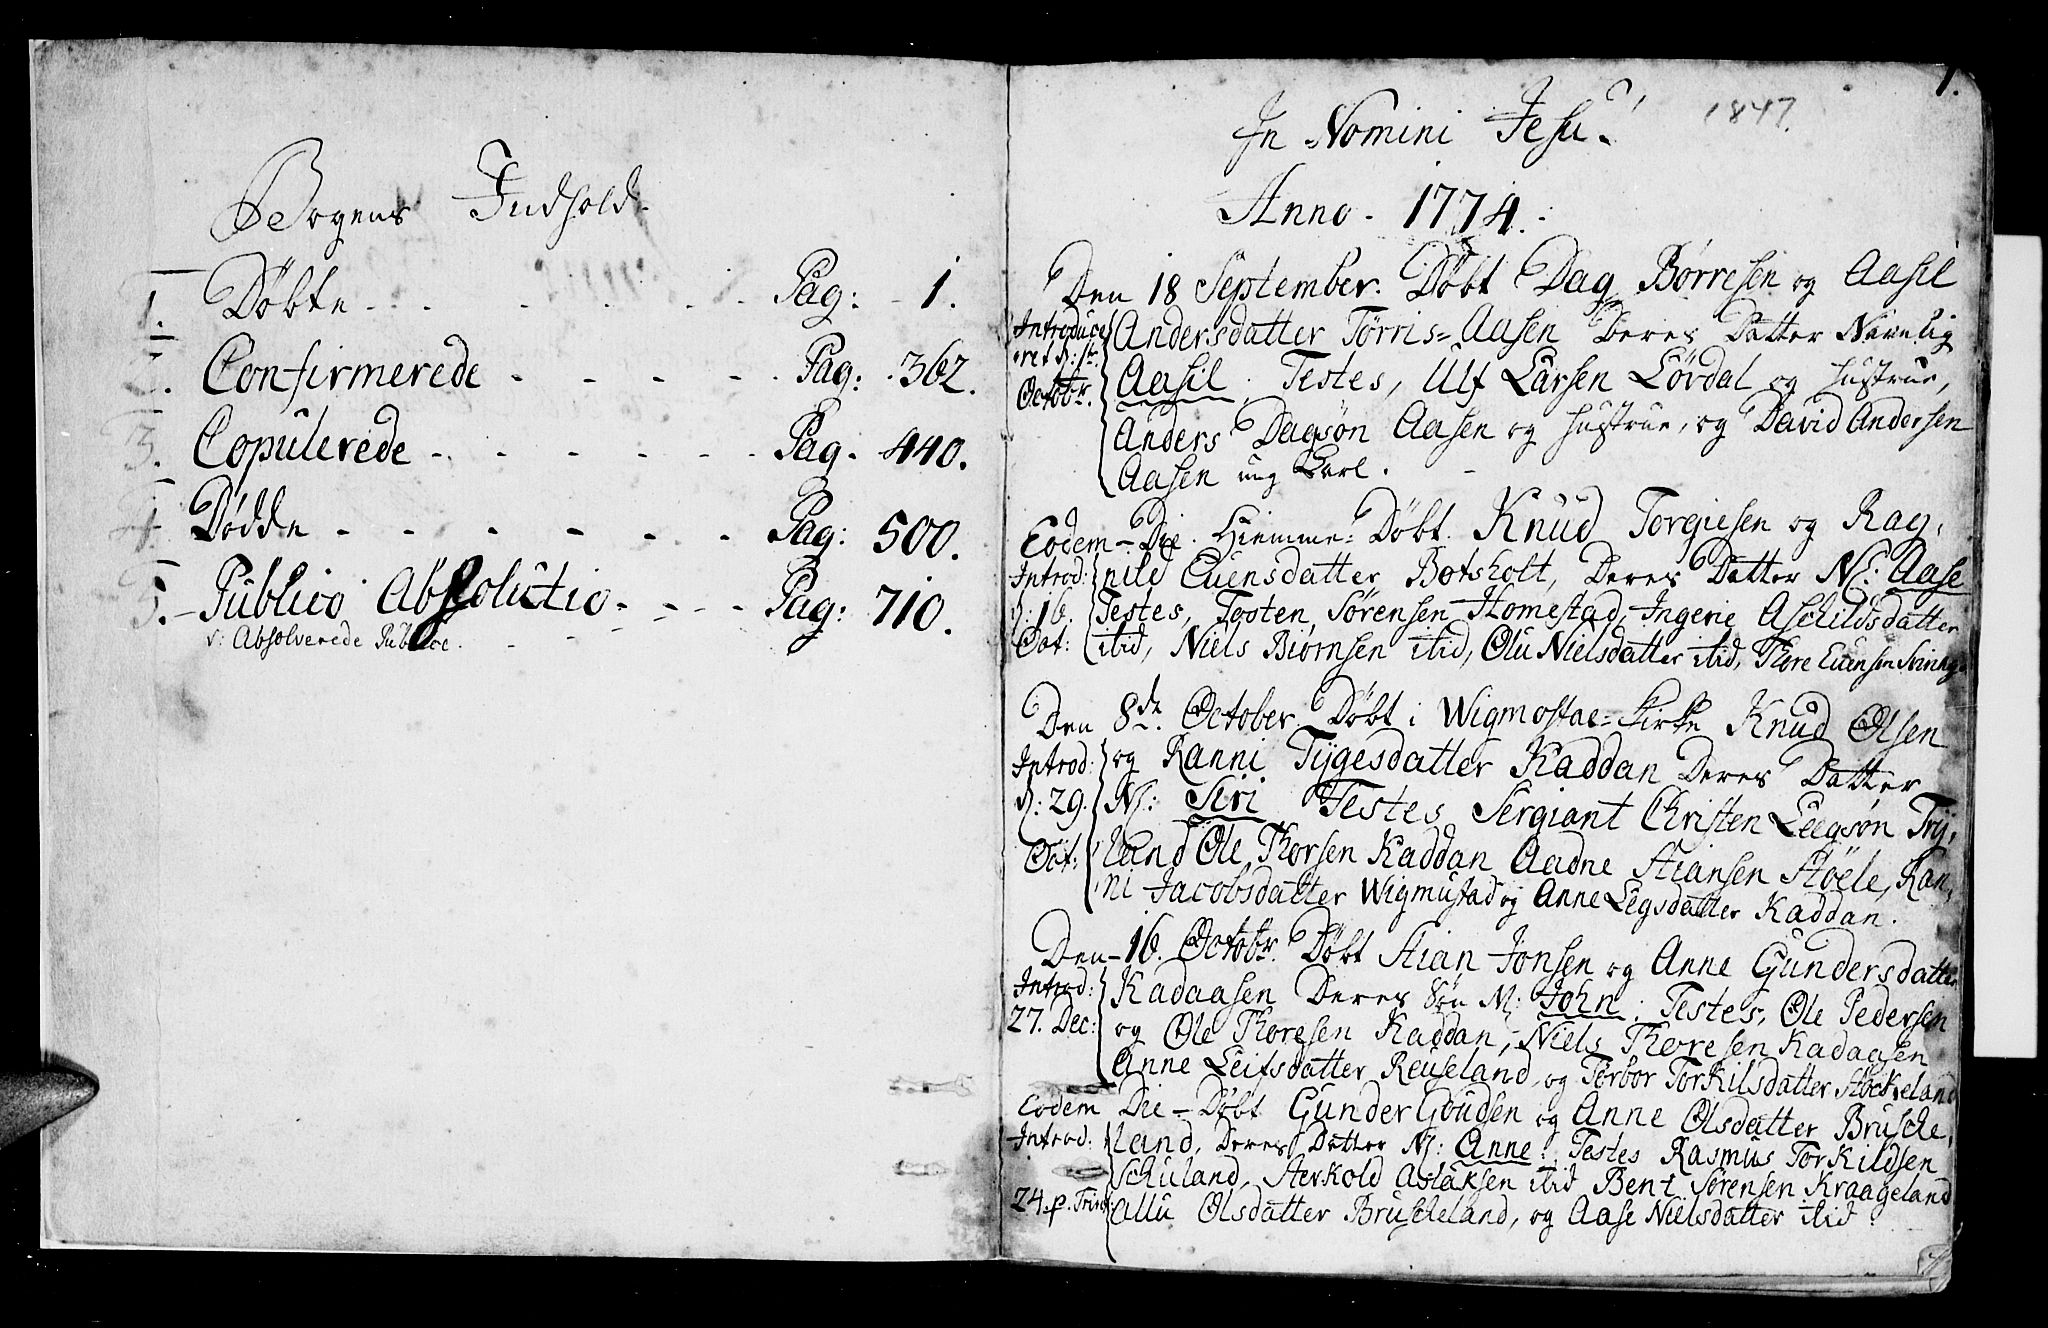 Bogens Indhold.
1. Døbte - - - Pag: 1.
2. Confirmerede - - - Pag: 362.
3. Copulerede - - - Pag. 440.
4. Dødde - - - Pag: 500.
5. Publico Absolutio - - - Pag: 710.
v: Absolverede Publice.
1.
1847.
In Nomini Jesu.
Anno. 1774.
Den 18 September. Døbt Dag Børresen og Aasil
Introduce Andersdatter Tørris-Aasen Deres Datter Navnlig
Aasil. Testes, Ulf Larsen Lørdal og Hustrue,
Octobr. Anders Dagsøn Aasen og Hustrue, og David Andersen
Aasen ung Karl.
Eodem-Die. Hiemme-Døbt. Knud Torgiesen og Rag-
Introd: nild Euensdatter Botsholt, Deres Datter N: Aase
d: 16. Testes, Tooten Sørensen Homestad, Ingerie Aschildsdatter
Oct: itid, Niels Biørnsen itid, Olu Nielsdatter itid, Thore Euensen
Den 8de. October Døbt i Wigmostae-Kirke Knud Olsen
Introd: og Ranni Tÿgesdatter Kaddan Deres Datter
d: 29. N: Siri Testes Sergiant Christen Leegsøn Trÿ-
Oct: land Ole Thorsen Kaddan Aadne Stiansen Støele, Ran-
ni Jacobsdatter Wigmustad og Anne Legsdatter Kaddan.
Den 16. Octobr. Døbt Stian Jonsen og Anne Gundersdatter
Introd: Kadaasen Deres Søn N: John. Testes, Ole Pedersen
27. Dec: og Ole Thoresen Kaddan, Niels Thoresen Kadaasen
Anne Leifsdatter Reuseland, og Torbor Torkilsdatter Støckeland
Eodem Die - Døbt Gunder Goudsen og Anne Olsdatter Brusche-
Introd: land, Deres Datter N: Anne. Testes Rasmus Torkildsen
Schuland, Sterkold Aslaksen itid Bent Sørensen Kraageland
24. p. Trinit: Allu Olsdatter Bruscheland, og Aase Nielsdatter itid